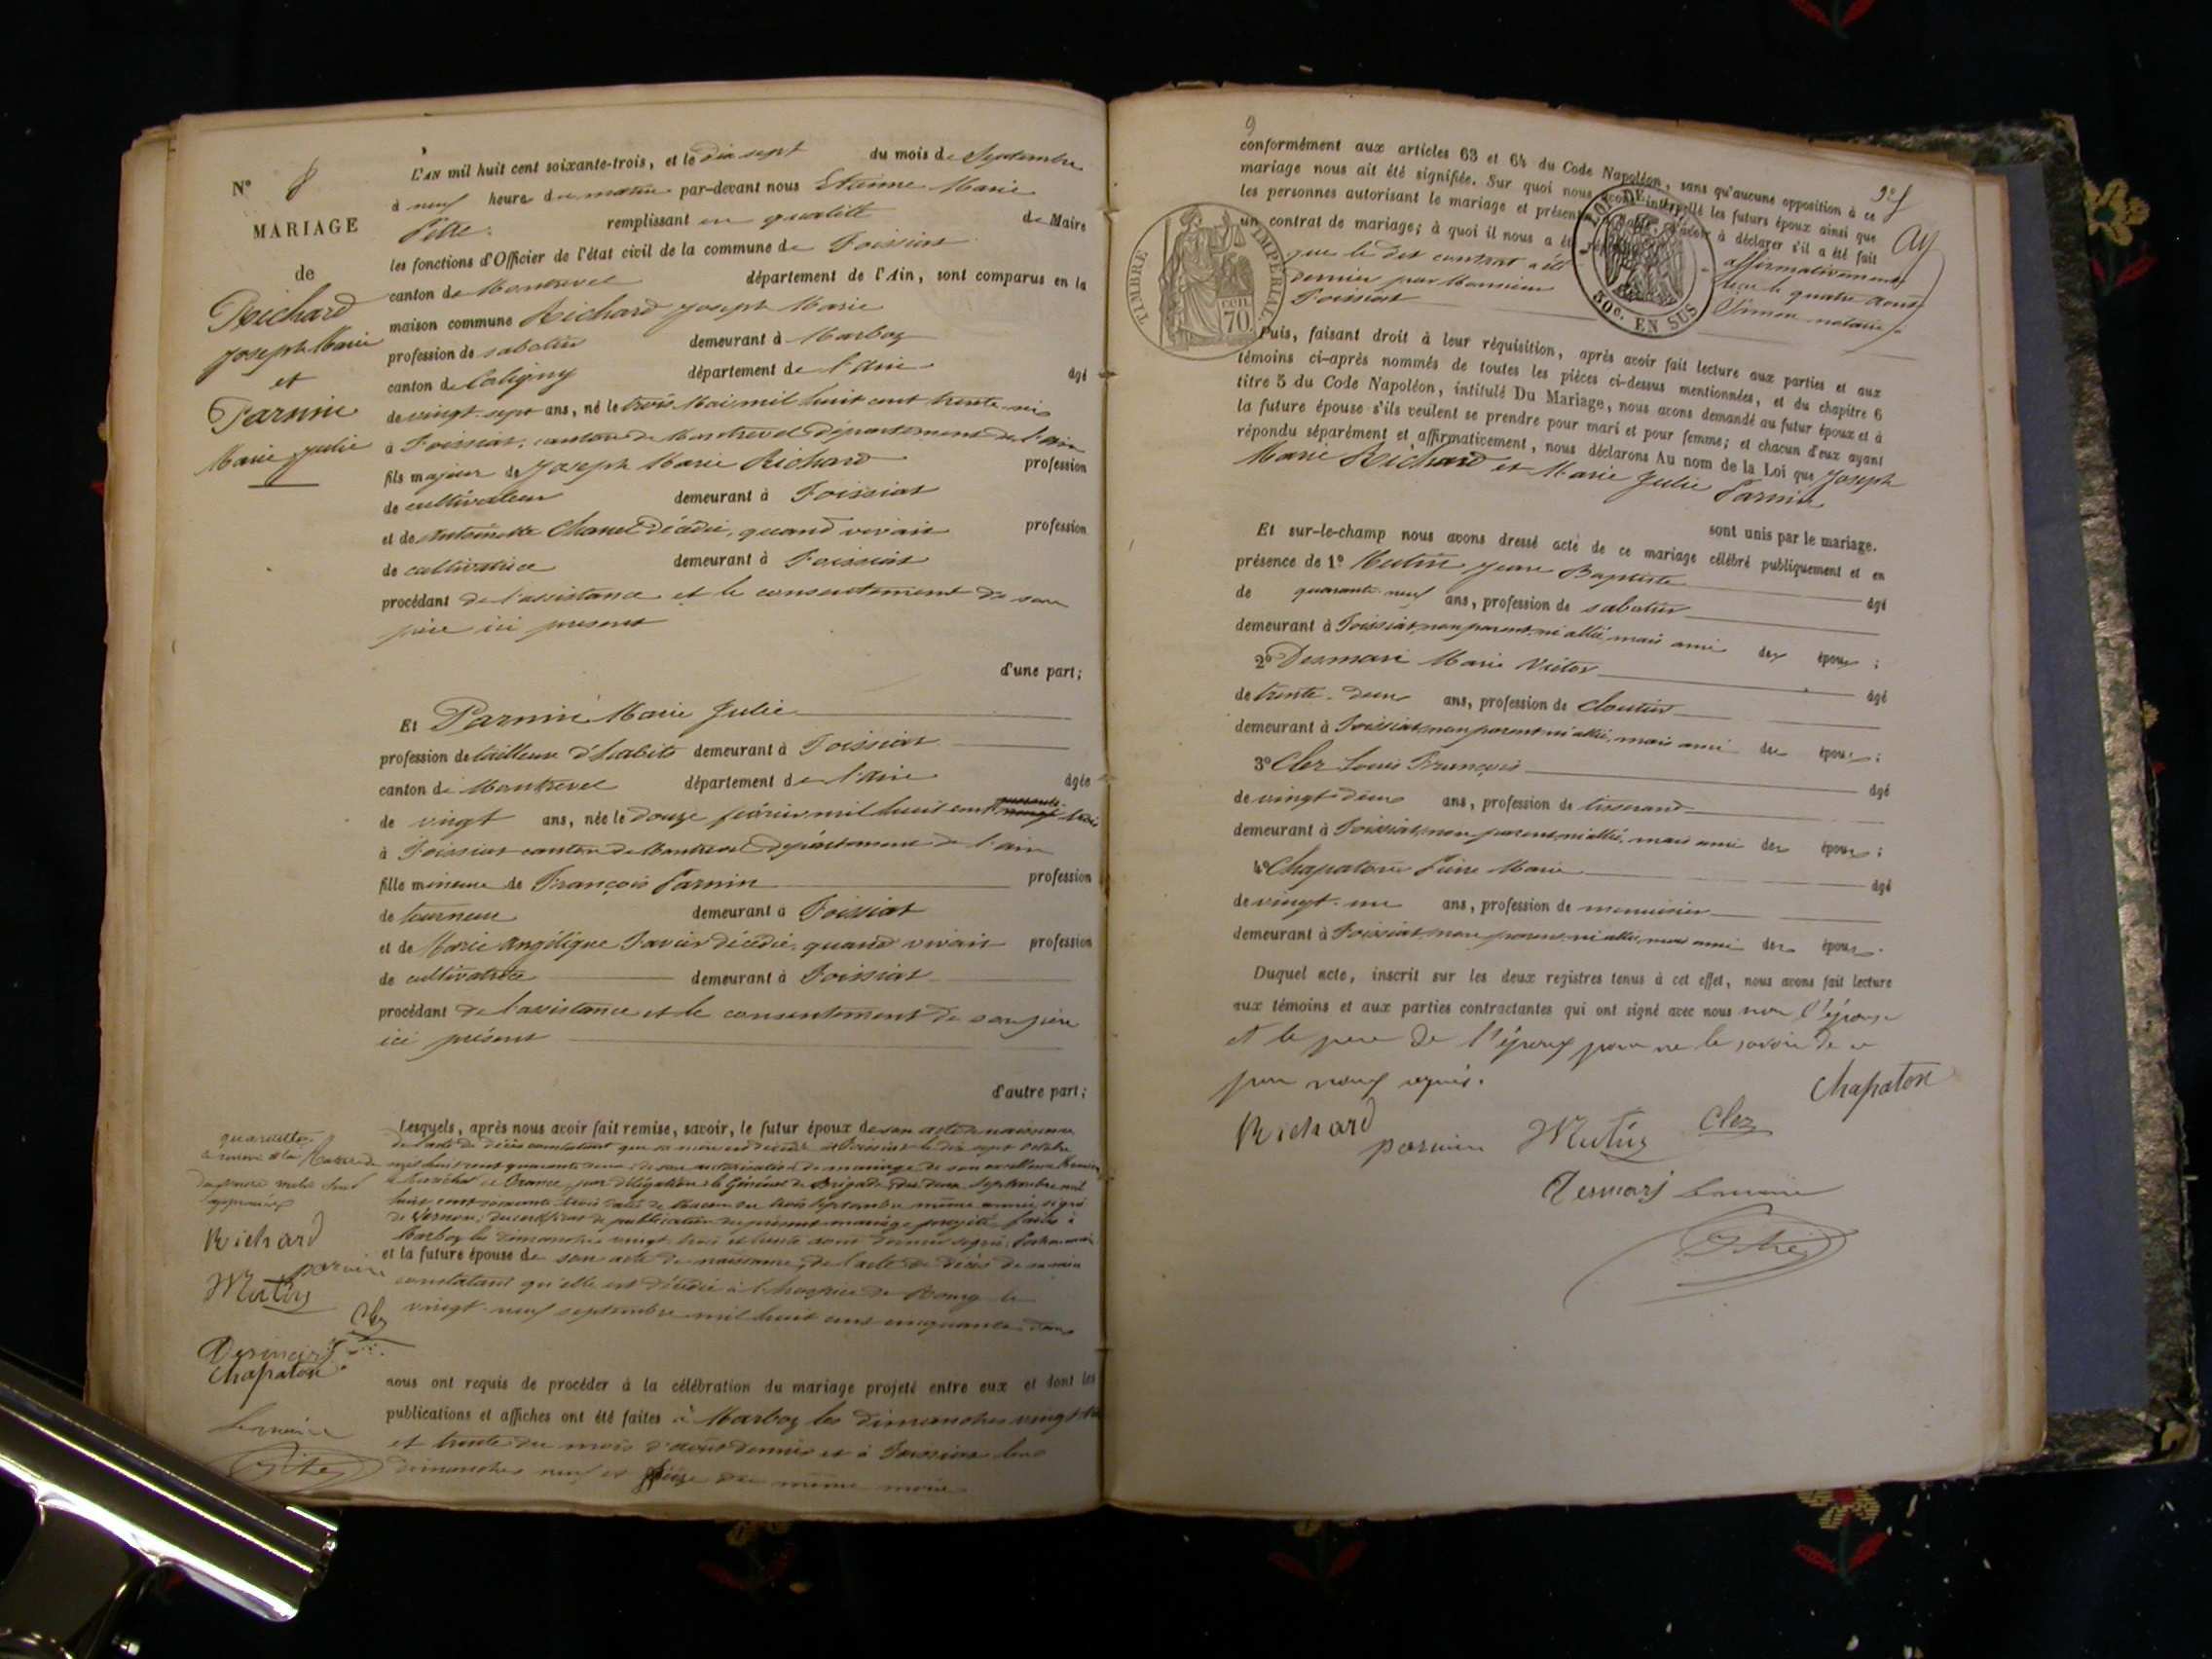 N° 8
MARIAGE
de
Richard
Joseph Marie
et
Parnin
Marie Julie
L'AN mil huit cent soixante-trois, et le dix sept du mois de Septembre
à neuf heure du matin par-devant nous Etienne Marie
Pitre remplissant en qualité de Maire
les fonctions d'Officier de l'état civil de la commune de Foissiat
canton de Montrevel département de l'Ain, sont comparus en la
maison commune Richard Joseph Marie
profession de sabotier demeurant à Marboz
canton de Coligny département de l'Ain âgé
de vingt-sept ans, né le trois Mai mil huit cent trente-six
à Foissiat, canton de Montrevel Département de l'ain
fils majeur de Joseph Marie Richard profession
de cultivateur demeurant à Foissiat
et de Antoinette Chanel Décédée, quand vivait profession
de cultivatrice demeurant à Foissiat
procédant de l'assistance et le consentement de son
père ici présent
d'une part;
Et Parnin Marie Julie
profession de tailleuse d'habits demeurant à Foissiat
canton de Montrevel département de l'Ain âgée
de vingt ans, née le douze février mil huit cent quarante trois
à Foissiat canton de Montrevel département de l'ain
fille mineure de François Parnin profession
de tourneur demeurant à Foissiat
et de Marie Angélique Favier décédée, quand vivait profession
de cultivatrice demeurant à Foissiat
procédant de l'assistance et le consentement de son père
ici présent
d'autre part;
Lesquels, après nous avoir fait remise, savoir, le futur époux de son acte de naissance
de l'acte de décès constatant que sa mère est décédée à Foissiat le dix sept octobre
mil huit cent quarante deux, de son autorisation de mariage de son excellence
le Maréchal de France, par délégation le Général de Brigade, du deux Septembre mil
huit cent soixante trois septembre même année signé
de Vernon; du certificat de publication du présent mariage projeté faites à
Marboz les dimanches vingt trois et trente août dernier signé
et la future épouse de son acte de naissance, de l'acte de décès de sa mère
constatant qu'elle est décédée à l'hospice de Bourg le
vingt-neuf septembre mil huit cent cinquante deux
nous ont requis de procéder à la célébration du mariage projeté entre eux et dont les
publications et affiches ont été faites à Marboz les dimanches vingt
et trente du mois d'août dernier et à Foissiat les
dimanches neuf et seize du même mois
Richard
parnin
Mutin
Clez
Desmaris
Chapaton
Le maire
Pitre
9
conformément aux articles 63 et 64 du Code Napoléon, sans qu'aucune opposition à ce
mariage nous ait été signifiée. Sur quoi nous avons interpellé les futurs époux ainsi que
les personnes autorisant le mariage et présentes à déclarer s'il a été fait
un contrat de mariage; à quoi il nous a été répondu affirmativement
que le dit contrat a été reçu le quatre août
dernier par Monsieur Simon notaire à
Foissiat
TIMBRE IMPÉRIAL
CEN.
70
50c. EN SUS
Puis, faisant droit à leur réquisition, après avoir fait lecture aux parties et aux
témoins ci-après nommés de toutes les pièces ci-dessus mentionnées, et du chapitre 6
titre 5 du Code Napoléon, intitulé Du Mariage, nous avons demandé au futur époux et à
la future épouse s'ils veulent se prendre pour mari et pour femme; et chacun d'eux ayant
répondu séparément et affirmativement, nous déclarons Au nom de la Loi que Joseph
Marie Richard et Marie Julie Parnin
sont unis par le mariage.
Et sur-le-champ nous avons dressé acte de ce mariage célébré publiquement et en
présence de 1° Mutin Jean Baptiste âgé
de quarante-neuf ans, profession de sabotier
demeurant à Foissiat, non parent, ni allié, mais ami des époux;
2° Desmari Marie Victor âgé
de trente-deux ans, profession de cloutier
demeurant à Foissiat, non parent ni allié, mais ami des époux;
3° Clez Louis François âgé
de vingt-deux ans, profession de tisserand
demeurant à Foissiat, non parent, ni allié, mais ami des époux;
4° Chapaton Pierre Marie âgé
de vingt-un ans, profession de menuisier
demeurant à Foissiat, non parent, ni allié, mais ami des époux.
Duquel acte, inscrit sur les deux registres tenus à cet effet, nous avons fait lecture
aux témoins et aux parties contractantes qui ont signé avec nous non l'épouse
et le père de l'époux pour ne le savoir de ce
par nous requis.
Chapaton
Richard parnin Mutin Clez
Desmaris Le maire
Pitre